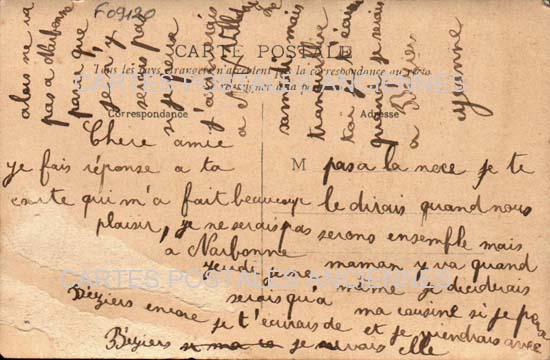 F09120
CARTE POSTALE
Tous les pays étrangers n'acceptent pas la correspondance au recto
Correspondance
Adresse
M
CARTES POSTALES ANCIENNES
CARTES POSTALES ANCIENNES
Chere amie
je fais réponse a ta
carte qui m'a fait beaucoup
plaisir, je ne serais pas
a Narbonne
jeudi je ne
serais qu'a
Béziers encore je t'écrirais de
Béziers si ma je
pas a la noce je te
le dirais quand nous
serons ensemble mais
maman y va quand
même je deciderais
ma cousine si je
et je viendrais avec
elle
alors ne va
pas a Narbonne
parce que
j'y
serais pas
si j'étais
a
samedi mais
ta écrire
quand je serais
a Béziers
yvonne